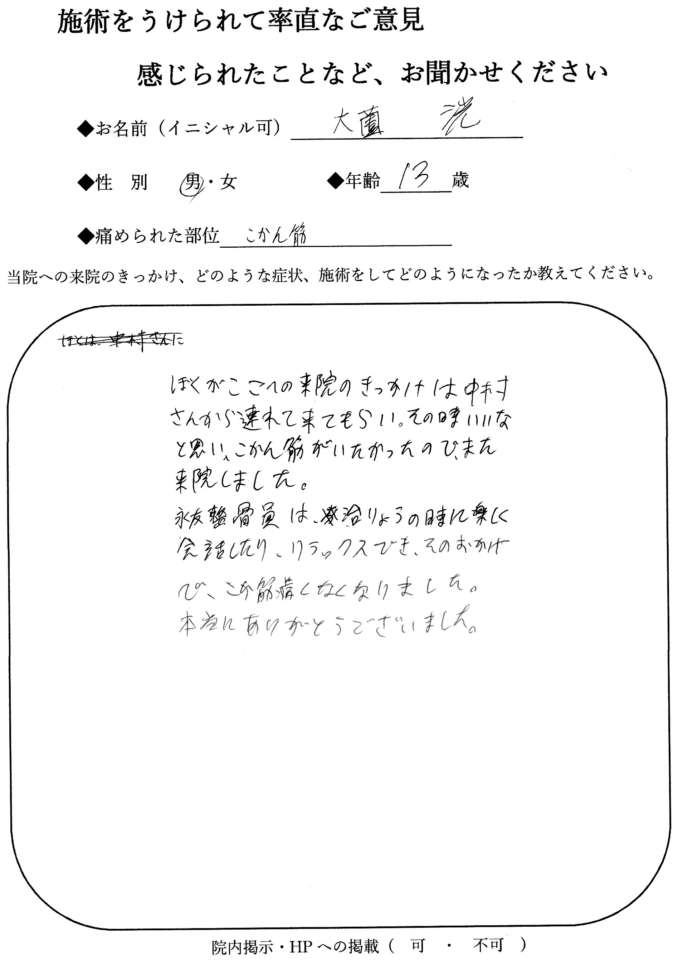 施術をうけられて率直なご意見
感じられたことなど、お聞かせください
◆お名前（イニシャル可） 大薗 滉
◆性 別 男・女 ◆年齢 13 歳
◆痛められた部位 こかん筋
当院への来院のきっかけ、どのような症状、施術をしてどのようになったか教えてください。
ぼくは、中村さんに
ぼくがここへの来院のきっかけは中村
さんから連れて来てもらい。その時いいな
と思い、こかん筋がいたかったので、また
来院しました。
永友整骨員は、治りょうの時に楽しく
会話したり、リラックスでき、そのおかげ
で、こか筋痛くなくなりました。
本当にありがとうございました。
院内掲示・HPへの掲載（ 可 ・ 不可 ）